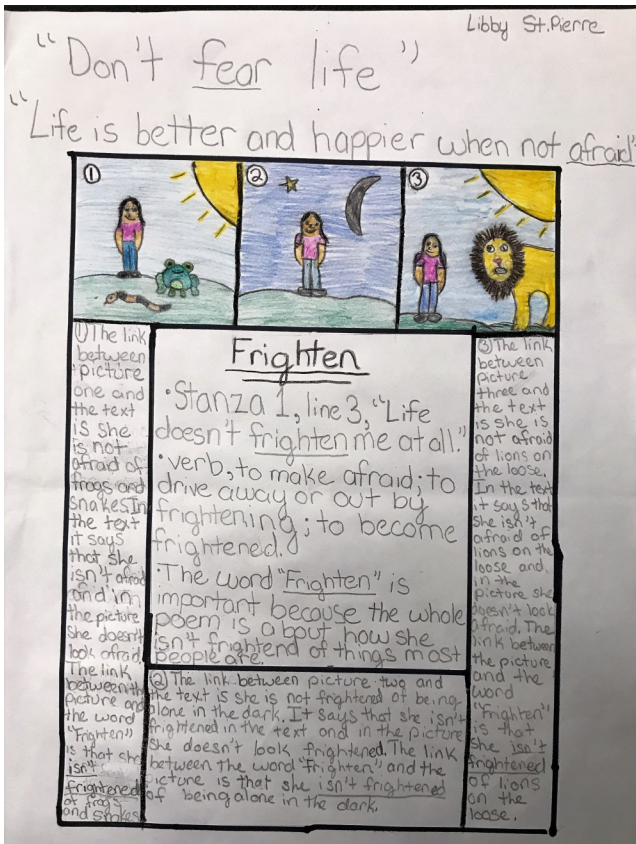 Libby St.Pierre
"Don't fear life"
"Life is better and happier when not afraid"
①
②
③
①The link
between
picture
one and
the text
is she
is not
afraid of
frogs and
snakes.In
the text
it says
that she
isn't afraid
and in
the picture
she doesn't
look afraid.
The link
between the
picture and
the word
"Frighten"
is that she
isn't
frightened
of frogs
and snakes
Frighten
·Stanza 1, line 3, "Life
doesn't frighten me at all."
·verb, to make afraid; to
drive away or out by
frightening; to become
frightened.
·The word "Frighten" is
important because the whole
poem is about how she
isn't frightend of things most
people are.
②The link between picture two and
the text is she is not frightened of being
alone in the dark. It says that she isn't
frightened in the text and in the picture
she doesn't look frightened. The link
between the word "Frighten" and the
picture is that she isn't frightened
of being alone in the dark.
③The link
between
picture
three and
the text
is she is
not afraid
of lions on
the loose.
In the text
it says that
she isn't
afraid of
lions on the
loose and
in the
picture she
doesn't look
afraid. The
link between
the picture
and the
word
"Frighten"
is that
she isn't
frightened
of lions
on the
loose.